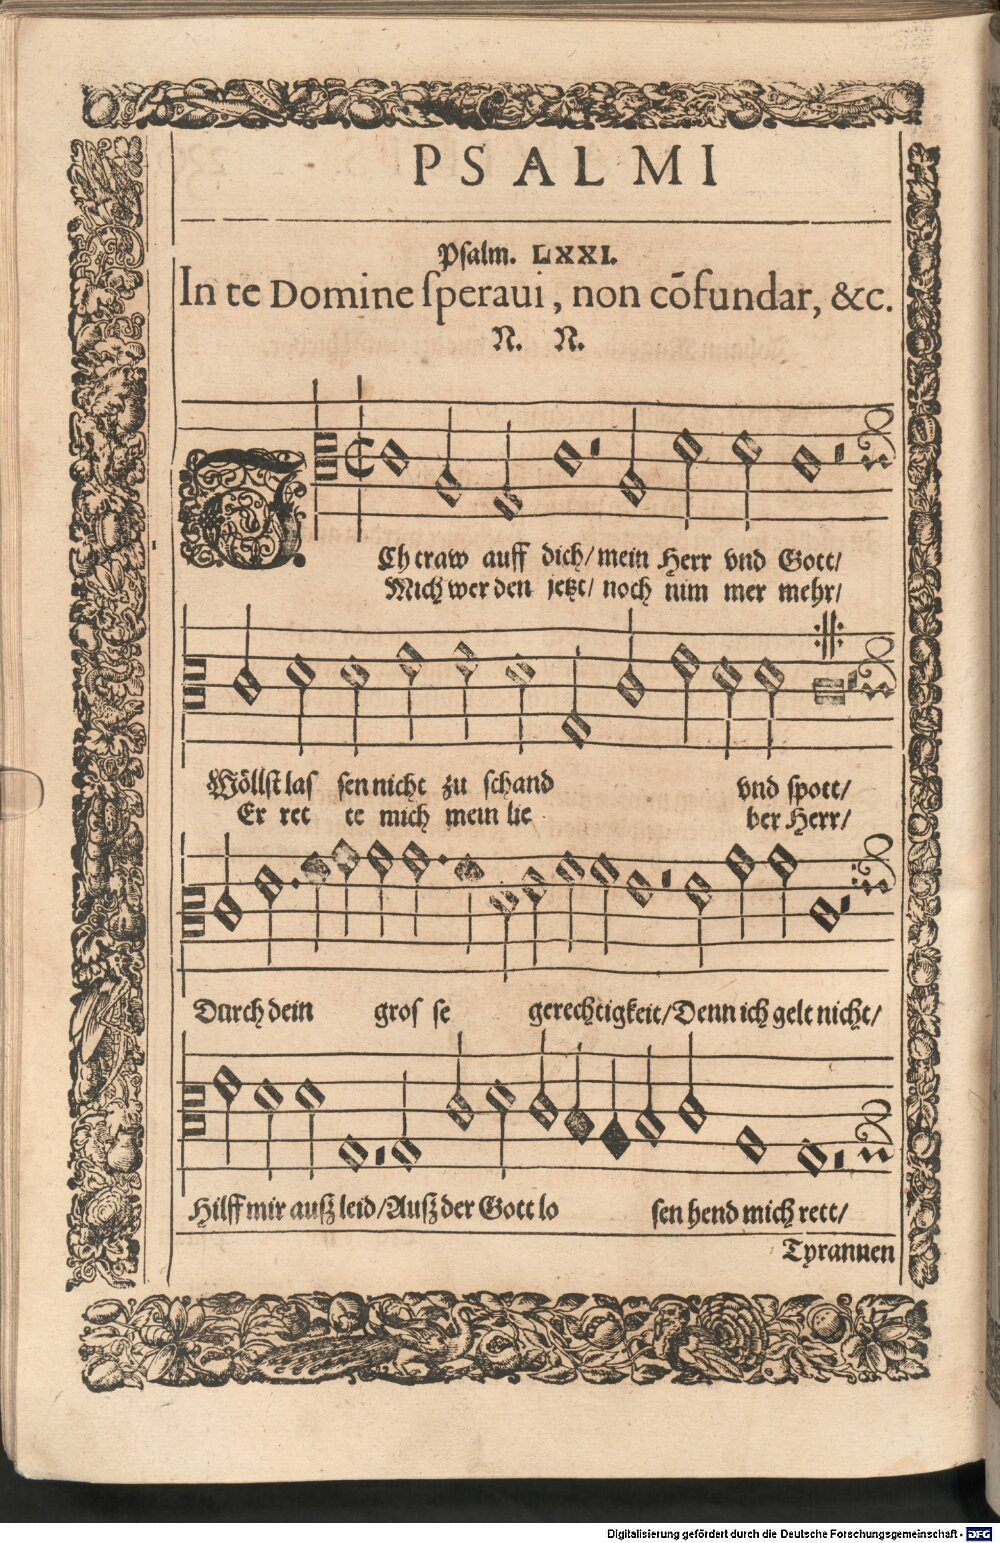 PSALMI
Psalm. LXXI.
In te Domine speraui, non cōfundar, &c.
N. N.
ICh traw auff dich/ mein Herr vnd Gott/
Mich wer den jetzt/ noch nim mer mehr/
Wöllst las sen nicht zu schand vnd spott/
Er ret te mich mein lie ber Herr/
Durch dein gros se gerechtigkeit/ Denn ich gelt nicht/
Hilff mir auß leid/ Auß der Gott lo sen hend mich rett/
Tyrannen
Digitalisierung gefördert durch die Deutsche Forschungsgemeinschaft - DFG